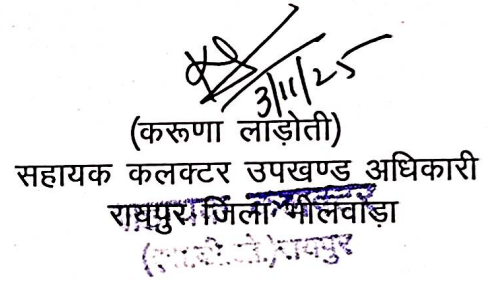 3/11/25
(करूणा लाड़ोती)
सहायक कलक्टर उपखण्ड अधिकारी
रायपुर जिला भीलवाड़ा
रायपुर